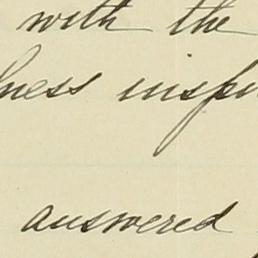 with the
ness inspi
answered